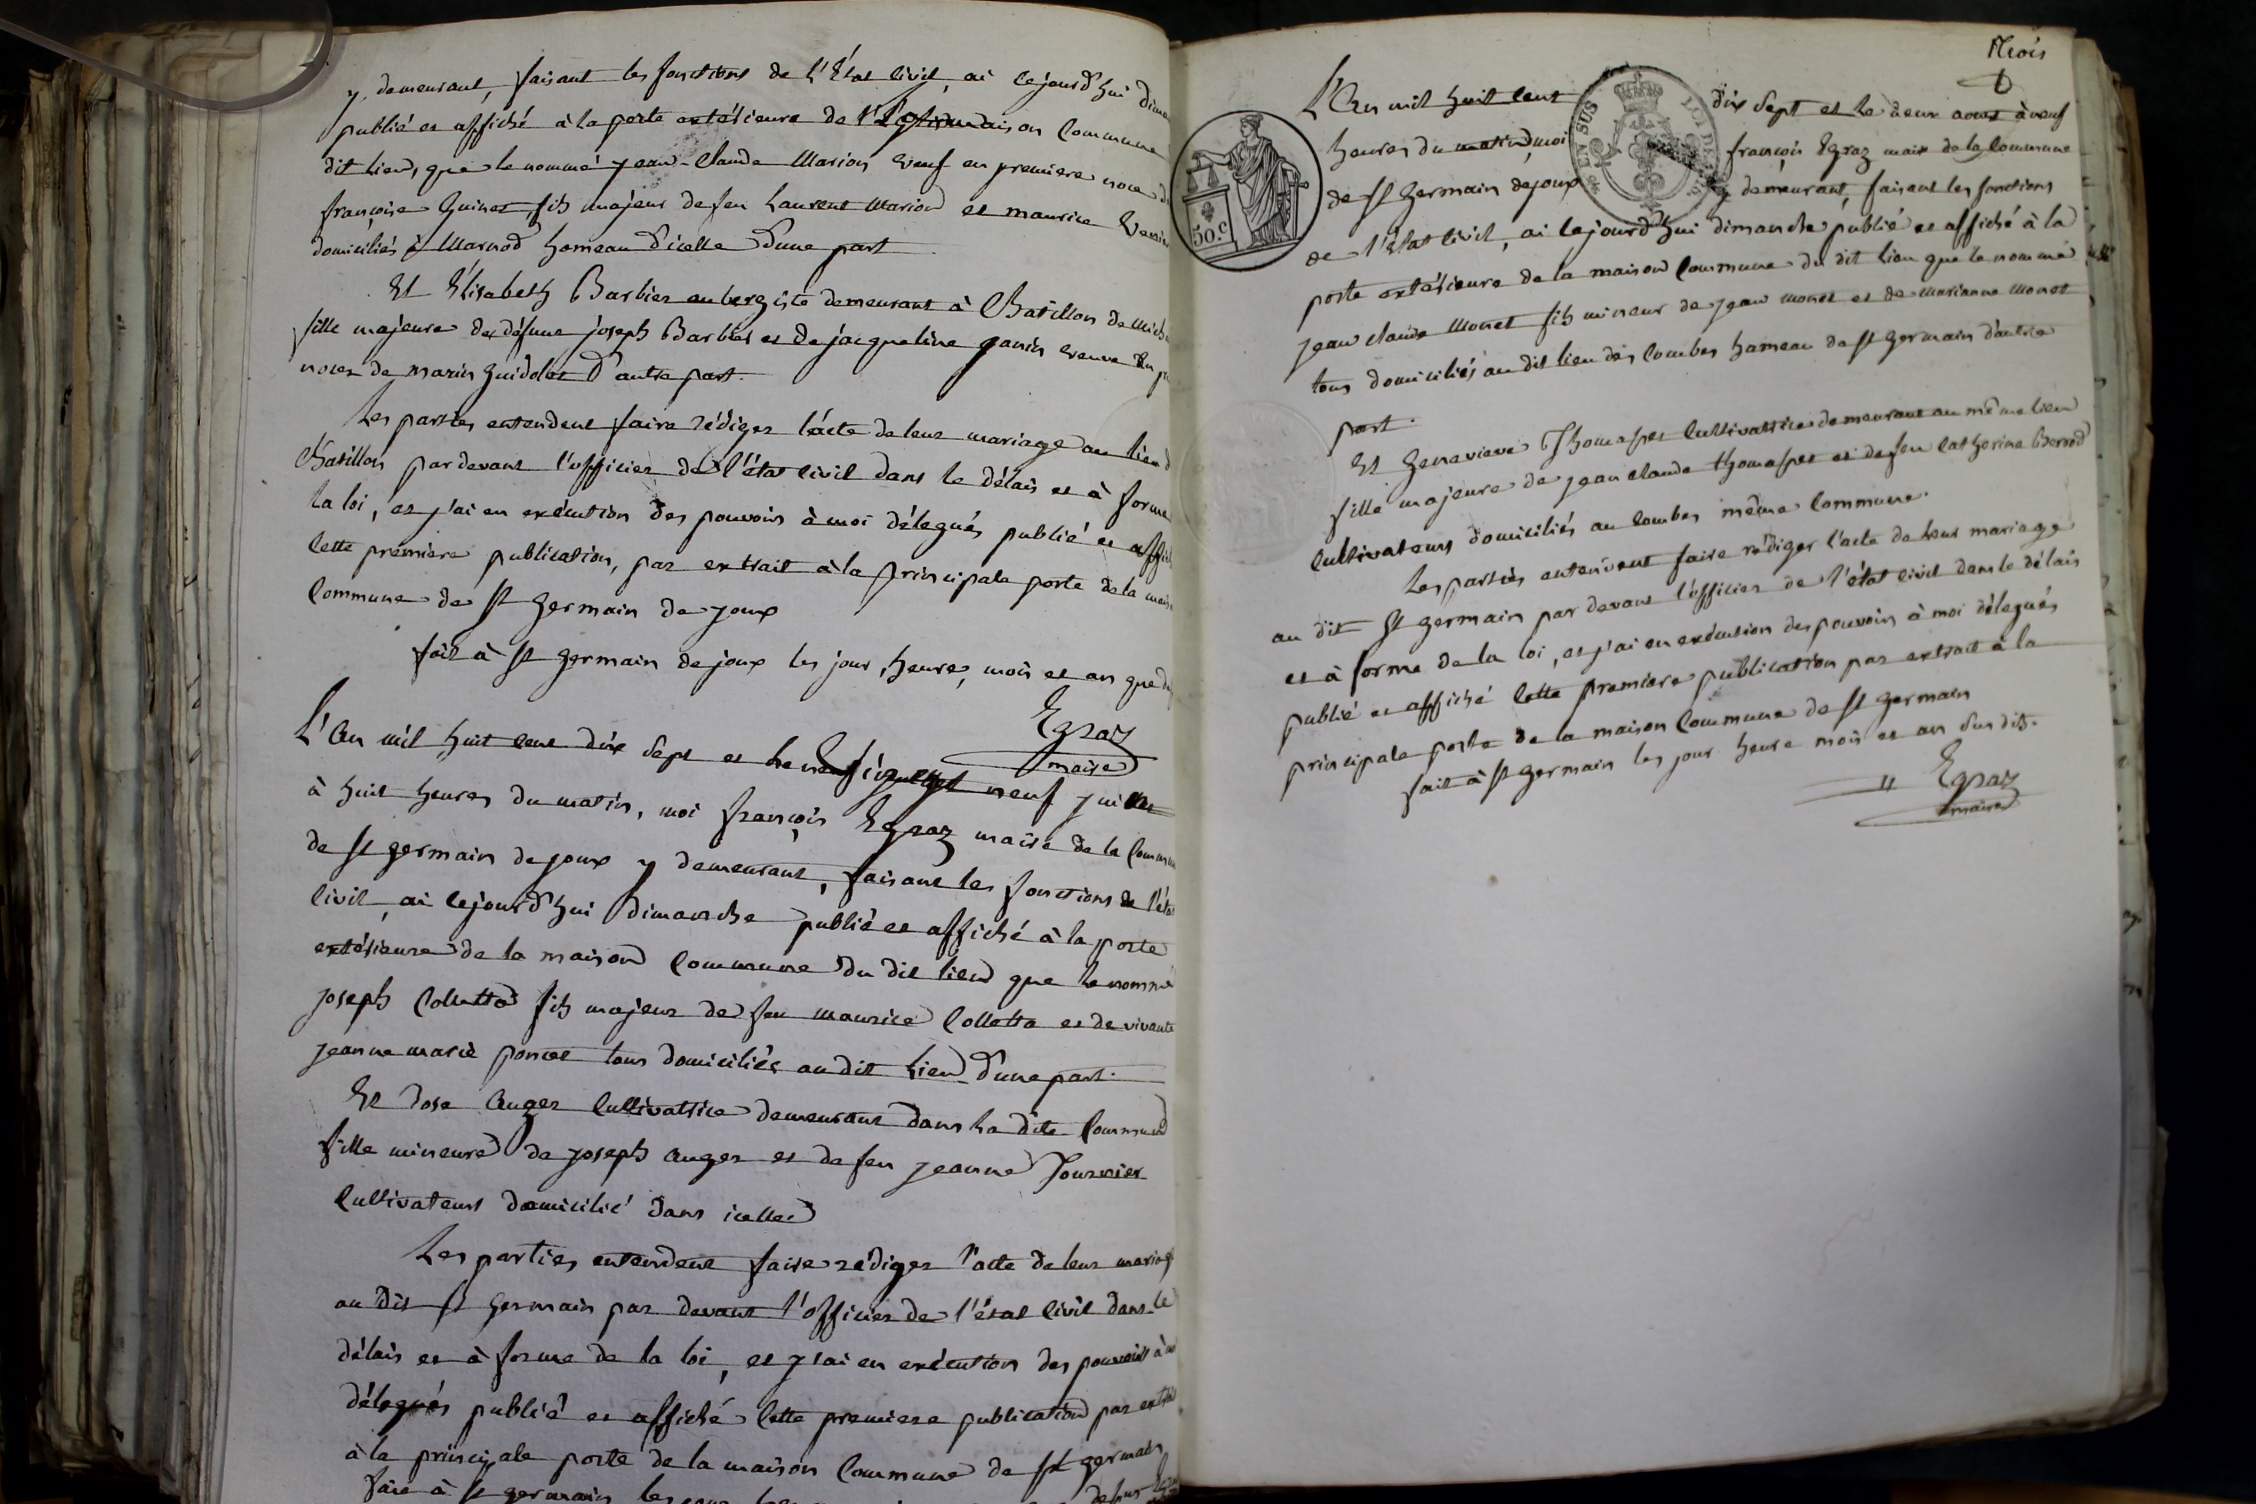 y demeurant, faisant les fonctions de l'État civil, ai cejourd'hui
publié et affiché à la porte extérieure de maison Commune
dit lieu, que le nommé jean-Claude Marion veuf en premiere noce
françoise Guinet, fils majeur de feu Laurent Marion et maurice
domiciliés à Marnod hameau d'icelle d'une part
Et Élisabeth Barbier aubergiste demeurant à Chatillon de
fille majeure de défunt joseph Barbier et de jacqueline veuve
noces de marin d'autre part.
Les parties entendent faire rédiger l'acte de leur mariage au lieu
Chatillon par devant l'officier de l'état civil dans le délais et à forme
la loi, et j'ai en exécution des pouvoirs à moi délegués publié et
Cette premiere publication, par extrait à la principale porte de la
Commune de St germain de joux
fait à St germain de joux les jour, heure, mois et an que
Egraz
maire
L'An mil huit cent dix sept et le neuf juillet
à huit heures du matin, moi françois Egraz maire de la
de St germain de joux y demeurant, faisant les fonctions de
civil, ai cejourd'hui dimanche publié et affiché à la porte
extérieure de la maison Commune du dit lieu que le nommé
joseph Colletta fils majeur de feu maurice Colletta et de vivante
jeanne marie poncet tous domiciliés au dit lieu d'une part.
Et Auger Cultivatrice demeurant dans la dite Commune
fille mineure de joseph auger et de feu jeanne Tournier
Cultivateurs domicilié dans icelle
Les parties entendent faire rédiger l'acte de leur mariage
au dit St germain par devant l'officier de l'état civil dans le
délais et à forme de la loi, et j'ai en exécution des pouvoirs à
délegués publié et affiché Cette premiere publication par
à la principale porte de la maison Commune de St germain
fait à St germain les jour
trois
L'An mil huit Cent dix sept et le aout à neuf
heures du matin, moi françois Egraz maire de la Commune
de St germain dejoux y demeurant, faisant les fonctions
de l'état civil, ai cejourd'hui dimanche publié et affiché à la
porte extérieure de la maison Commune du dit lieu que le nommé
jean claude Monet fils mineur de jean monet et de marianne monet
tous domiciliés au dit lieu des Combes hameau de St germain d'autre
part.
Et genevieve Cultivatrice demeurant au même lieu
fille majeure de jean claude et de feu Catherine
Cultivateurs domiciliés au Combes même Commune.
Les parties entendent faire rédiger l'acte de leur mariage
au dit St germain par devant l'officier de l'état civil dans le délais
et à forme de la loi, et j'ai en exécution des pouvoirs à moi délegués
publié et affiché Cette premiere publication par extrait à la
principale porte de la maison Commune de St germain
fait à St germain les jour heure mois et an sus dits.
Egraz
maire
50.c
EN SUS